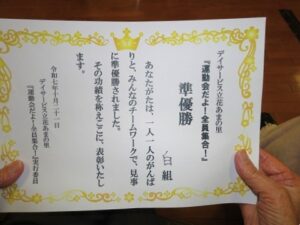 デイサービス立花あまの里
『運動会だよ！全員集合！』
準優勝
白組
あなたがたは、一人一人のがんば
りと、みんなのチームワークで、見事
に準優勝されました。
その功績を称えここに、表彰いたし
ます。
令和七年十月二十一日
デイサービス立花あまの里
『運動会だよ！全員集合！』実行委員